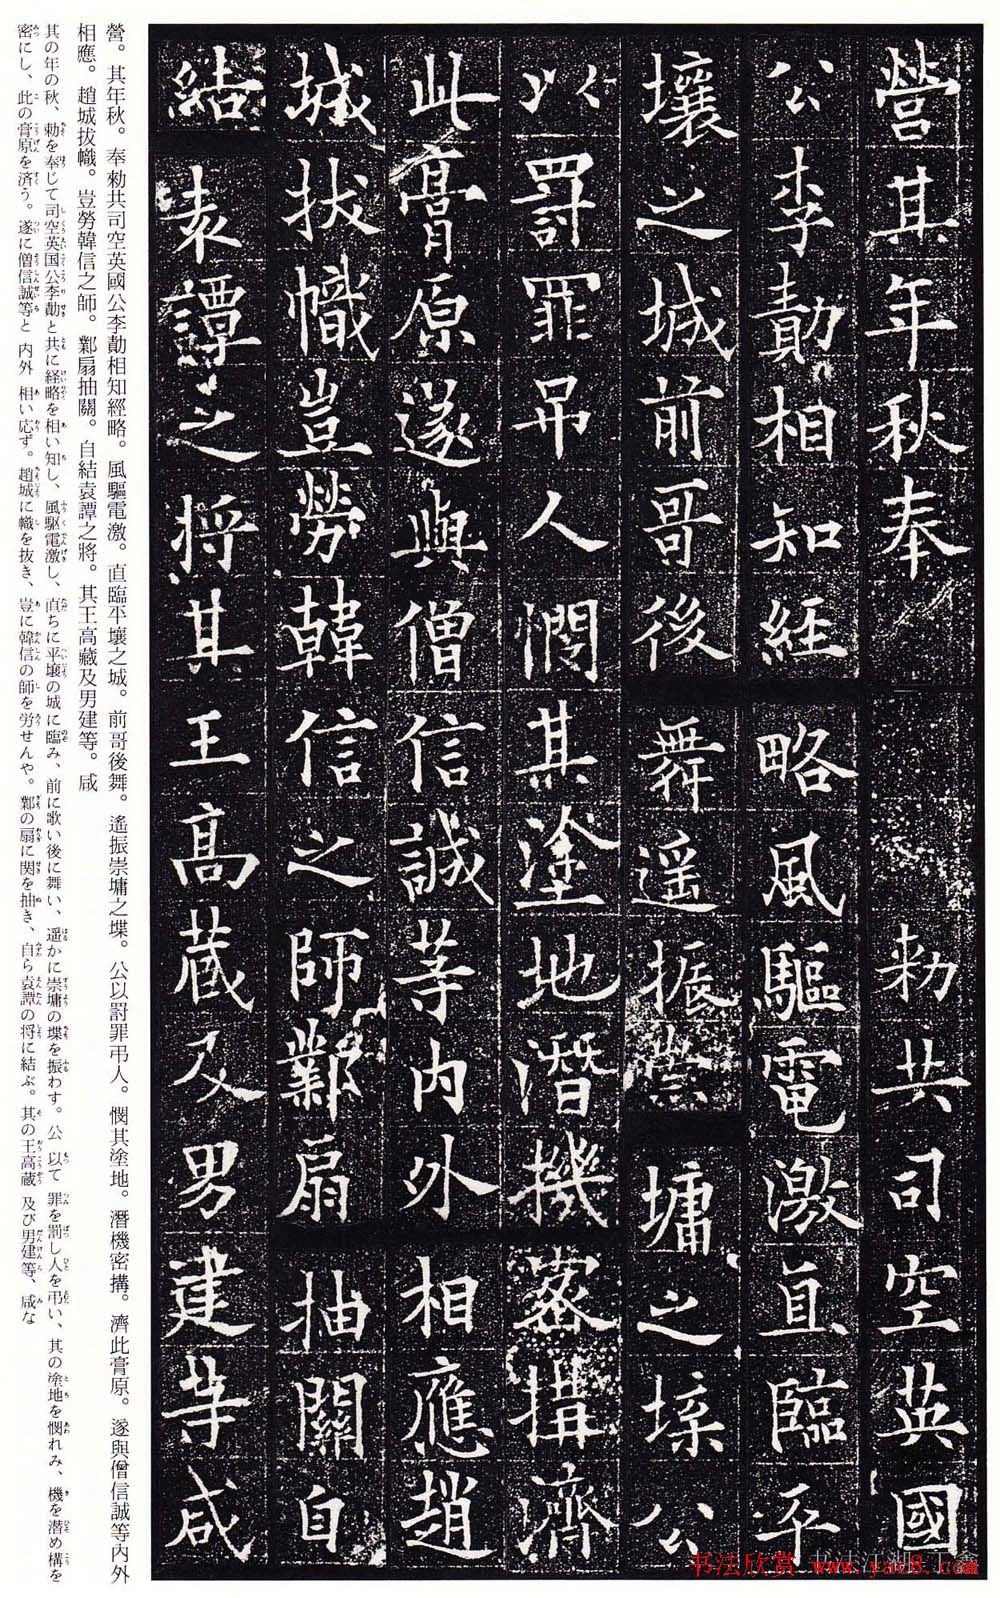 營其年秋奉勑共司空英國
公李勣相知經略風驅電激直臨平
壤之城前哥後舞遥振崇墉之堞公
以罸罪弔人憫其塗地潛機密搆濟
此膏原遂與僧信誠等内外相應趙
城拔幟豈勞韓信之師鄴扇抽關自
結袁譚之將其王高藏及男建等咸
營。其年秋。奉勑共司空英國公李勣相知經略。風驅電激。直臨平壤之城。前哥後舞。遙振崇墉之堞。公以罸罪弔人。憫其塗地。潛機密搆。濟此膏原。遂與僧信誠等内外
相應。趙城拔幟。豈勞韓信之師。鄴扇抽關。自結袁譚之將。其王高藏及男建等。咸
其の年の秋、勅を奉じて司空英国公李勣と共に経略を相い知し、風駆電激し、直ちに平壌の城に臨み、前に歌い後に舞い、遥かに崇墉の堞を振わす。公 以て罪を罰し人を弔い、其の塗地を憫れみ、機を潜め構を
密にし、此の膏原を済う。遂に僧信誠等と 内外 相い応ず。趙城に幟を抜き、豈に韓信の師を労せんや。鄴の扇に関を抽き、自ら袁譚の将に結ぶ。其の王高蔵 及び男建等、咸な
书法欣赏 www.yac8.com